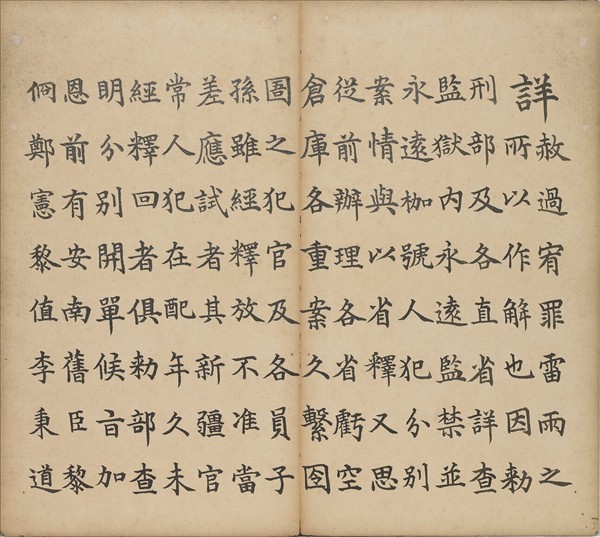 詳赦過宥罪雷雨之
所以作解也因勅
刑部及各直省詳查
監獄內永遠監禁並
永遠枷號人犯分別
案情與以省釋又思
從前辦理各省虧空
倉庫各重案久繫囹
圄之犯官及各員子
孫雖經釋放不准當
差應試者其新疆官
常人犯在配年久未
經釋回者俱勅部查
明分別開單候旨加
恩前有安南舊臣黎
侗鄭憲黎值李秉道